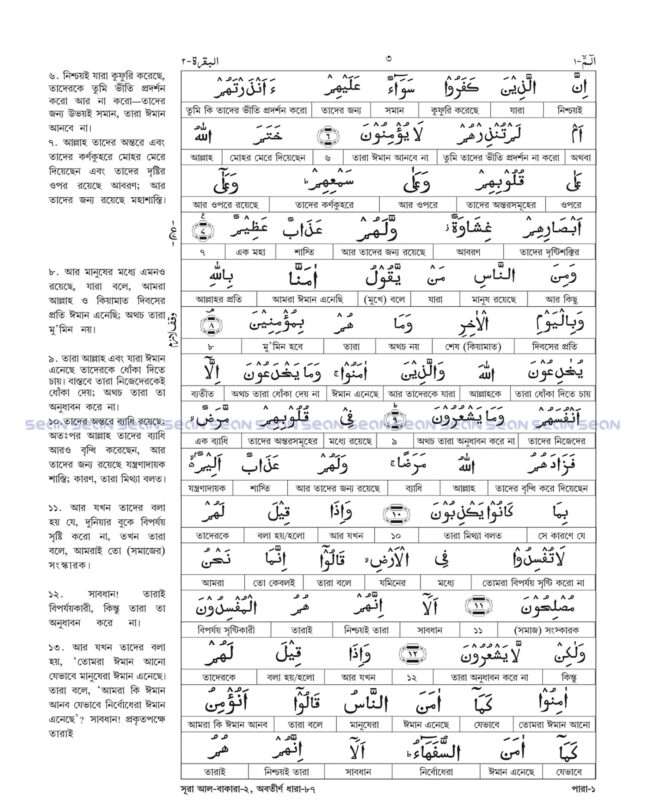 البقرة-٢
٣
الٓمّٓ-١
৬. নিশ্চয়ই যারা কুফুরি করেছে,
তাদেরকে তুমি ভীতি প্রদর্শন
করো আর না করো—তাদের
জন্য উভয়ই সমান, তারা ঈমান
আনবে না।
৭. আল্লাহ তাদের অন্তরে এবং
তাদের কর্ণকুহরে মোহর মেরে
দিয়েছেন এবং তাদের দৃষ্টির
ওপর রয়েছে আবরণ; আর
তাদের জন্য রয়েছে মহাশাস্তি।
৮. আর মানুষের মধ্যে এমনও
রয়েছে, যারা বলে, আমরা
আল্লাহ ও কিয়ামাত দিবসের
প্রতি ঈমান এনেছি; অথচ তারা
মু'মিন নয়।
৯. তারা আল্লাহ এবং যারা ঈমান
এনেছে তাদেরকে ধোঁকা দিতে
চায়। বাস্তবে তারা নিজেদেরকেই
ধোঁকা দেয়; অথচ তারা তা
অনুধাবন করে না।
১০. তাদের অন্তরে ব্যাধি রয়েছে;
অতঃপর আল্লাহ তাদের ব্যাধি
আরও বৃদ্ধি করেছেন, আর
তাদের জন্য রয়েছে যন্ত্রণাদায়ক
শাস্তি; কারণ, তারা মিথ্যা বলত।
১১. আর যখন তাদের বলা
হয় যে, দুনিয়ার বুকে বিপর্যয়
সৃষ্টি করো না, তখন তারা
বলে, আমরাই তো (সমাজের)
সংস্কারক।
১২. সাবধান! তারাই
বিপর্যয়কারী, কিন্তু তারা তা
অনুধাবন করে না।
১৩. আর যখন তাদের বলা
হয়, 'তোমরা ঈমান আনো
যেভাবে মানুষেরা ঈমান এনেছে।
তারা বলে, 'আমরা কি ঈমান
আনব যেভাবে নির্বোধেরা ঈমান
এনেছে'? সাবধান! প্রকৃতপক্ষে
তারাই
اِنَّ الَّذِيْنَ كَفَرُوْا سَوَآءٌ عَلَيْهِمْ ءَاَنْذَرْتَهُمْ
তুমি কি তাদের ভীতি প্রদর্শন করো তাদের জন্য সমান কুফুরি করেছে যারা নিশ্চয়ই
اَمْ لَمْ تُنْذِرْهُمْ لَا يُؤْمِنُوْنَ ٦ خَتَمَ اللّٰهُ
আল্লাহ মোহর মেরে দিয়েছেন ৬ তারা ঈমান আনবে না তুমি তাদের ভীতি প্রদর্শন না করো অথবা
عَلٰى قُلُوْبِهِمْ وَعَلٰى سَمْعِهِمْ وَعَلٰٓى
আর ওপরে রয়েছে তাদের কর্ণকুহরে আর ওপরে তাদের অন্তরসমূহের ওপরে
اَبْصَارِهِمْ غِشَاوَةٌ وَّلَهُمْ عَذَابٌ عَظِيْمٌ ٧
৭ এক মহা শাস্তি আর তাদের জন্য রয়েছে আবরণ তাদের দৃষ্টিশক্তির
وَمِنَ النَّاسِ مَنْ يَّقُوْلُ اٰمَنَّا بِاللّٰهِ
আল্লাহর প্রতি আমরা ঈমান এনেছি (মুখে) বলে যারা মানুষ রয়েছে আর কিছু
وَبِالْيَوْمِ الْاٰخِرِ وَمَا هُمْ بِمُؤْمِنِيْنَ ٨
৮ মু'মিন হবে তারা অথচ নয় শেষ (কিয়ামাত) দিবসের প্রতি
يُخٰدِعُوْنَ اللّٰهَ وَالَّذِيْنَ اٰمَنُوْا وَمَا يَخْدَعُوْنَ اِلَّآ
ব্যতীত অথচ তারা ধোঁকা দেয় না ঈমান এনেছে আর তাদেরকে যারা আল্লাহকে তারা ধোঁকা দিতে চায়
اَنْفُسَهُمْ وَمَا يَشْعُرُوْنَ ٩ فِيْ قُلُوْبِهِمْ مَّرَضٌ
এক ব্যাধি তাদের অন্তরসমূহের মধ্যে রয়েছে ৯ অথচ তারা অনুধাবন করে না তাদের নিজেদের
فَزَادَهُمُ اللّٰهُ مَرَضًا وَلَهُمْ عَذَابٌ اَلِيْمٌ
যন্ত্রণাদায়ক শাস্তি আর তাদের জন্য রয়েছে ব্যাধি আল্লাহ তাদের বৃদ্ধি করে দিয়েছেন
بِمَا كَانُوْا يَكْذِبُوْنَ ١٠ وَاِذَا قِيْلَ لَهُمْ
তাদেরকে বলা হয়/হলো আর যখন ১০ তারা মিথ্যা বলত সে কারণে যে
لَا تُفْسِدُوْا فِى الْاَرْضِ قَالُوْٓا اِنَّمَا نَحْنُ
আমরা তো কেবলই তারা বলে যমিনের মধ্যে তোমরা বিপর্যয় সৃষ্টি করো না
مُصْلِحُوْنَ ١١ اَلَآ اِنَّهُمْ هُمُ الْمُفْسِدُوْنَ
বিপর্যয় সৃষ্টিকারী তারাই নিশ্চয়ই তারা সাবধান ১১ (সমাজ) সংস্কারক
وَلٰكِنْ لَّا يَشْعُرُوْنَ ١٢ وَاِذَا قِيْلَ لَهُمْ
তাদেরকে বলা হয়/হলো আর যখন ১২ তারা অনুধাবন করে না কিন্তু
اٰمِنُوْا كَمَآ اٰمَنَ النَّاسُ قَالُوْٓا اَنُؤْمِنُ
আমরা কি ঈমান আনব তারা বলে মানুষেরা ঈমান এনেছে যেভাবে তোমরা ঈমান আনো
كَمَآ اٰمَنَ السُّفَهَآءُ اَلَآ اِنَّهُمْ هُمُ
তারাই নিশ্চয়ই তারা সাবধান নির্বোধেরা ঈমান এনেছে যেভাবে
সূরা আল-বাকারা-২, অবতীর্ণ ধারা-৮৭
পারা-১